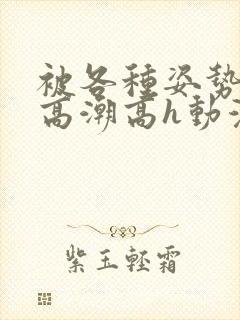 被各種姿勢
高潮高h動
紫玉輕霜